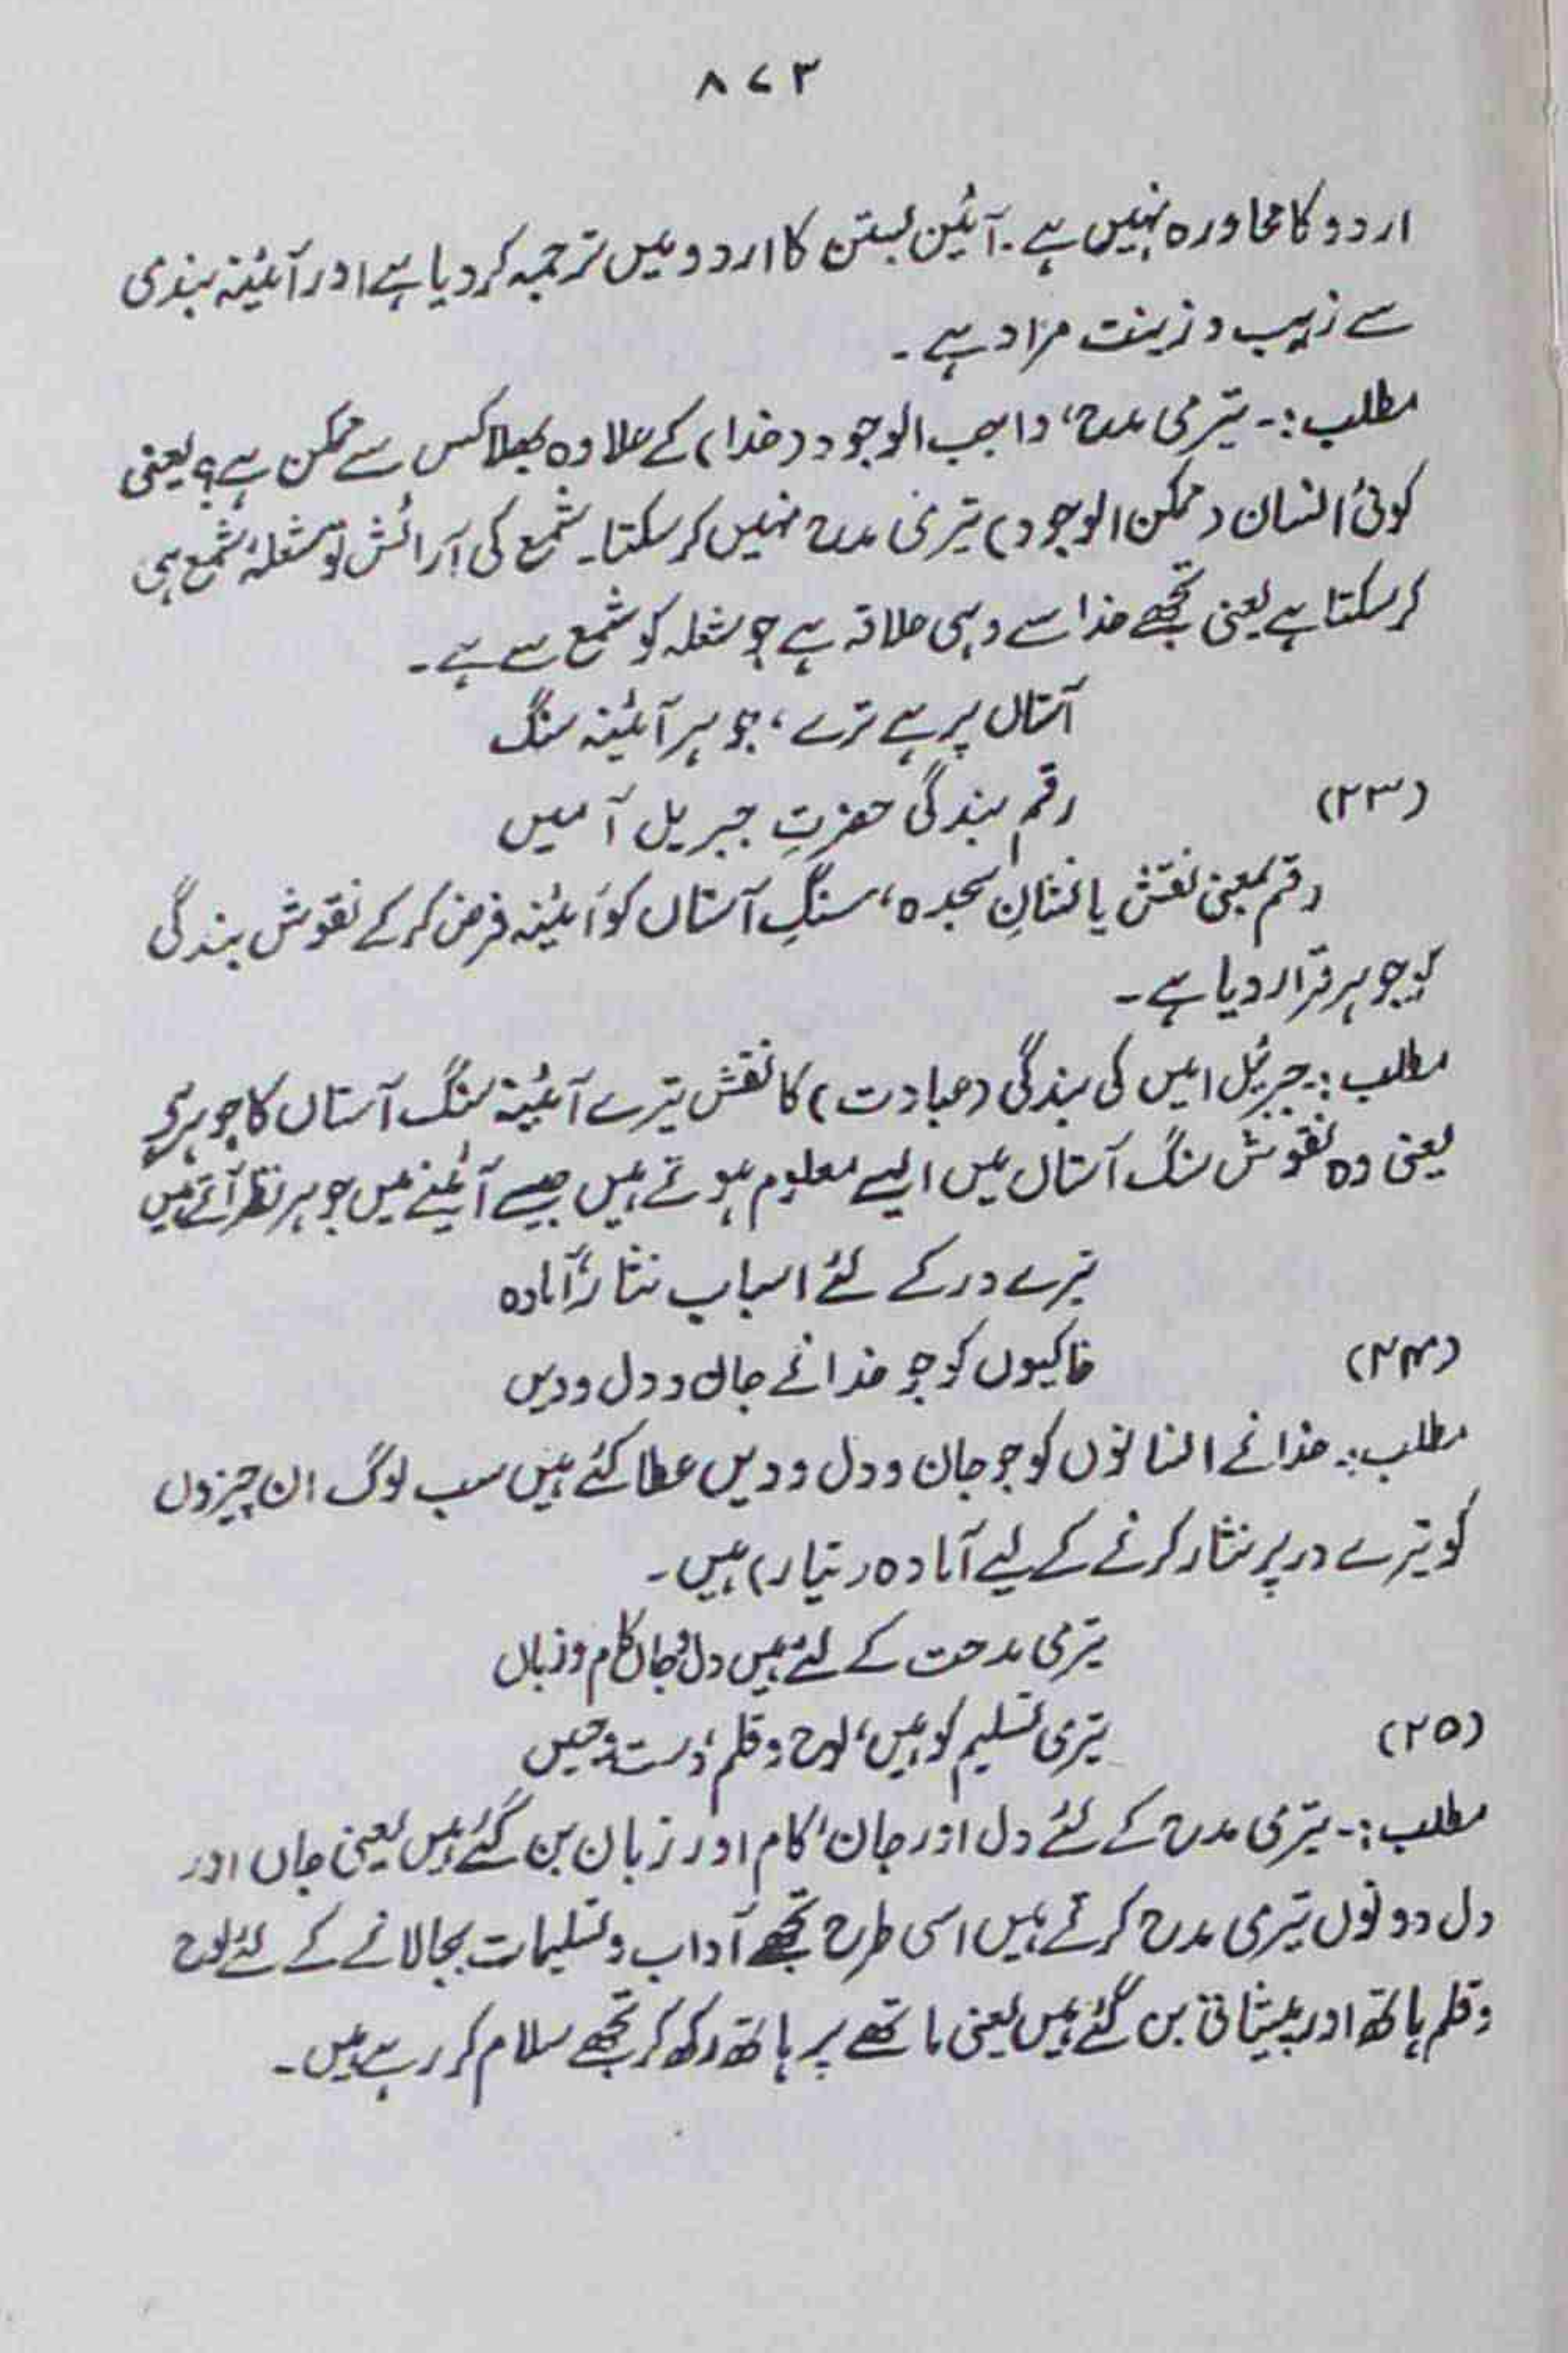 ۸۷۳
اردو کا محاورہ نہیں ہے۔ آئین بستن کا اردو میں ترجمہ کردیا ہے اور آئینہ بندی
سے زیب و زینت مراد ہے۔
مطلب :۔ تیری مدح، واجب الوجود (خدا) کے علاوہ بھلا کس سے ممکن ہے؟ یعنی
کوئی انسان (ممکن الوجود) تیری مدح نہیں کرسکتا۔ شمع کی آرائش تو شعلۂ شمع ہی
کرسکتا ہے یعنی تجھے خدا سے وہی علاقہ ہے جو شعلہ کو شمع سے ہے۔
آستاں پر ہے ترے، جوہر آئینہ سنگ
(۲۳) رقم بندگی حضرتِ جبریل آمیں
رقم بمعنی نقش یا نشانِ سجدہ، سنگِ آستاں کو آئینہ فرض کرکے نقوش بندگی
کو جوہر قرار دیا ہے۔
مطلب :۔ جبرئیل امیں کی بندگی (عبادت) کا نقش تیرے آئینۂ سنگ آستاں کا جوہر ہے
یعنی وہ نقوش سنگ آستاں میں ایسے معلوم ہوتے ہیں جیسے آئینے میں جوہر نظر آتے ہیں
تیرے در کے لئے اسباب نثار آمادہ
(۲۴) خاکیوں کو جو خدا نے جاں و دل و دیں
مطلب :۔ خدا نے انسانوں کو جو جان و دل و دیں عطا کئے ہیں سب لوگ ان چیزوں
کو تیرے در پر نثار کرنے کے لیے آمادہ (تیار) ہیں۔
تیری مدحت کے لئے ہیں دل و جاں کام و زباں
(۲۵) تیری تسلیم کو ہیں، لوح و قلم، دست و جبیں
مطلب :۔ تیری مدح کے لئے دل اور جان، کام اور زبان بن گئے ہیں یعنی جاں اور
دل دونوں تیری مدح کرتے ہیں اسی طرح تجھے آداب و تسلیمات بجالانے کے لئے لوح
و قلم ہاتھ اور پیشانی بن گئے ہیں یعنی ماتھے پر ہاتھ رکھ کر تجھے سلام کر رہے ہیں۔